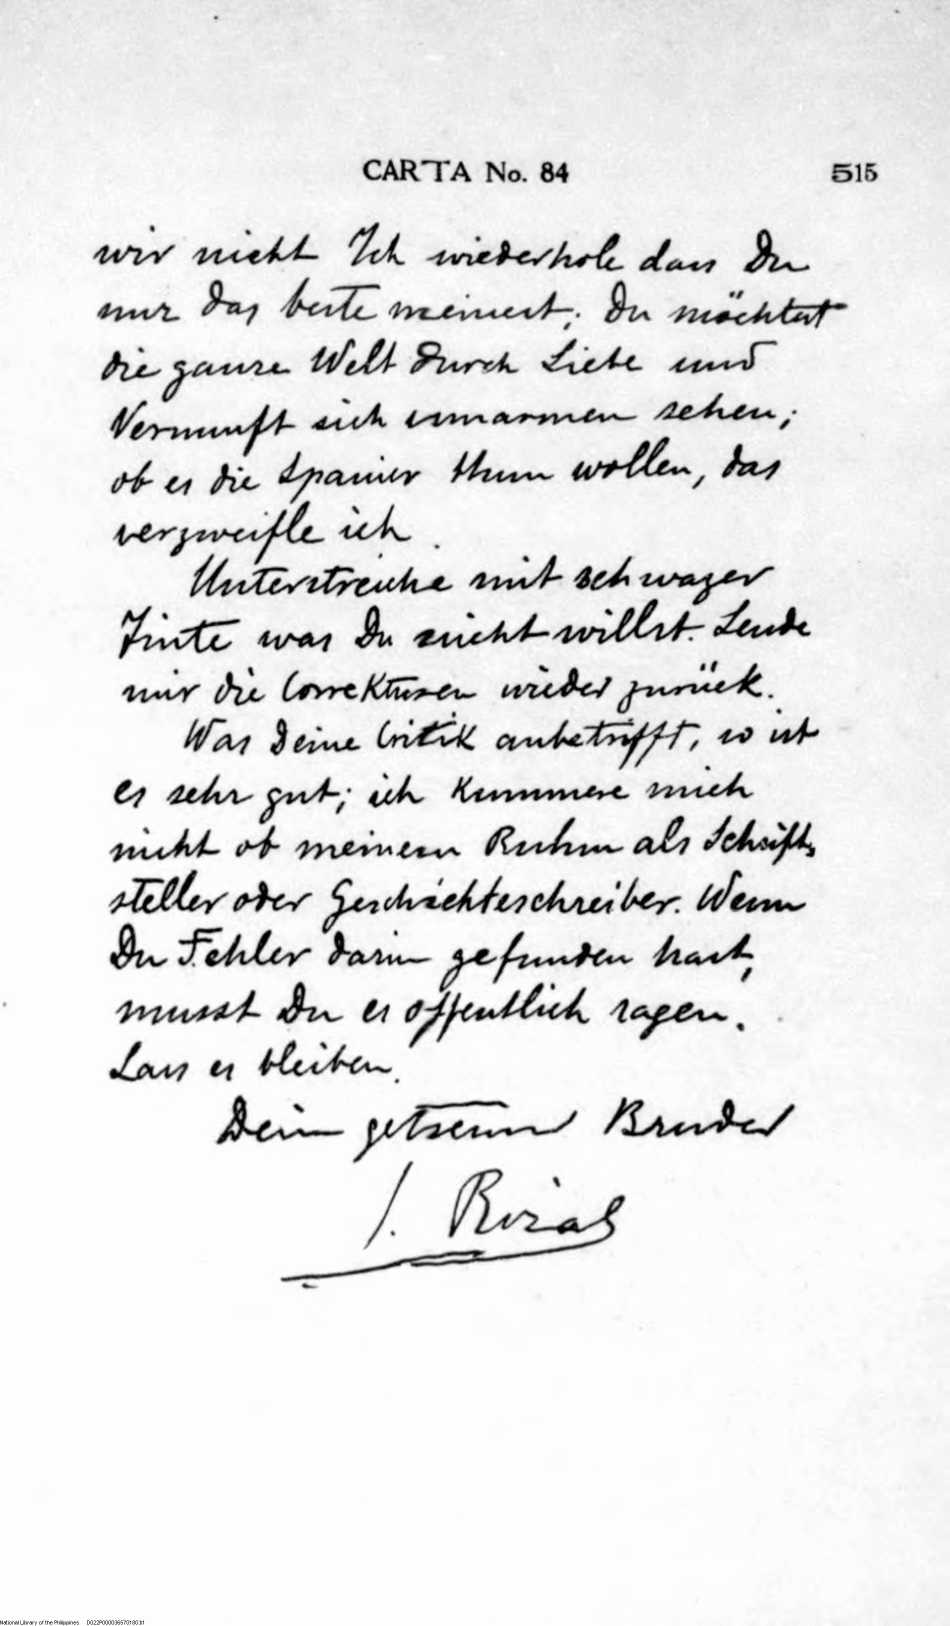 CARTA No. 84
515
wir nicht Ich wiederhole dass Du
nur das beste meinest; Du möchtest
die ganze Welt durch Liebe und
Vernunft sich umarmen sehen;
ob es die Spanier thun wollen, das
verzweifle ich.
Unterstreiche mit schwazer
Tinte was Du nicht willst. Sende
mir die Correkturen wieder zurück.
Was Deine Critik anbetrifft, so ist
es sehr gut; ich kummere mich
nicht ob meinem Ruhm als Schrift-
steller oder Geschichteschreiber. Wenn
Du Fehler darin gefunden hast,
musst Du es offentlich sagen.
Lass es bleiben.
Dein getreuer Bruder
J. Rizal
National Library of the Philippines